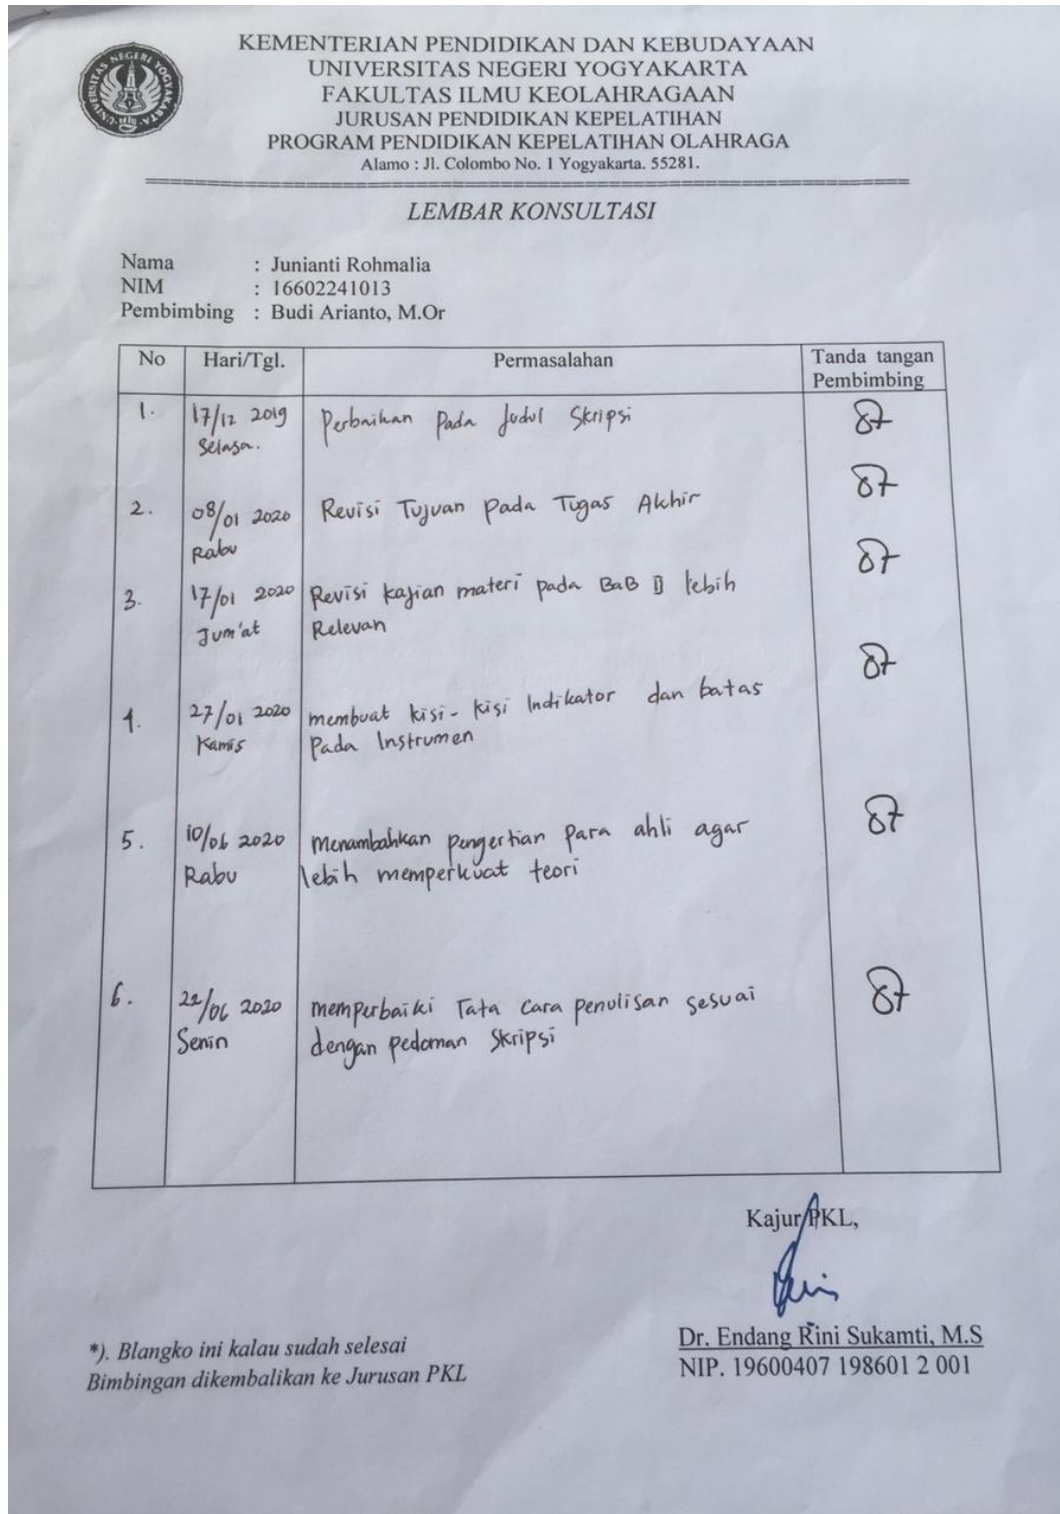 UNIVERSITAS NEGERI YOGYAKARTA
KEMENTERIAN PENDIDIKAN DAN KEBUDAYAAN
UNIVERSITAS NEGERI YOGYAKARTA
FAKULTAS ILMU KEOLAHRAGAAN
JURUSAN PENDIDIKAN KEPELATIHAN
PROGRAM PENDIDIKAN KEPELATIHAN OLAHRAGA
Alamo : Jl. Colombo No. 1 Yogyakarta. 55281.
LEMBAR KONSULTASI
Nama : Junianti Rohmalia
NIM : 16602241013
Pembimbing : Budi Arianto, M.Or
No Hari/Tgl. Permasalahan Tanda tangan
Pembimbing
1. 17/12 2019 Perbaikan Pada Judul Skripsi
Selasa.
2. 08/01 2020 Revisi Tujuan pada Tugas Akhir
Rabu
3. 17/01 2020 Revisi kajian materi pada BaB II lebih
Jum'at Relevan
4. 27/01 2020 membuat kisi-kisi Indikator dan batas
Kamis Pada Instrumen
5. 10/06 2020 menambahkan pengertian para ahli agar
Rabu lebih memperkuat teori
6. 22/06 2020 memperbaiki Tata Cara penulisan sesuai
Senin dengan pedoman Skripsi
Kajur PKL,
Dr. Endang Rini Sukamti, M.S
NIP. 19600407 198601 2 001
*). Blangko ini kalau sudah selesai
Bimbingan dikembalikan ke Jurusan PKL